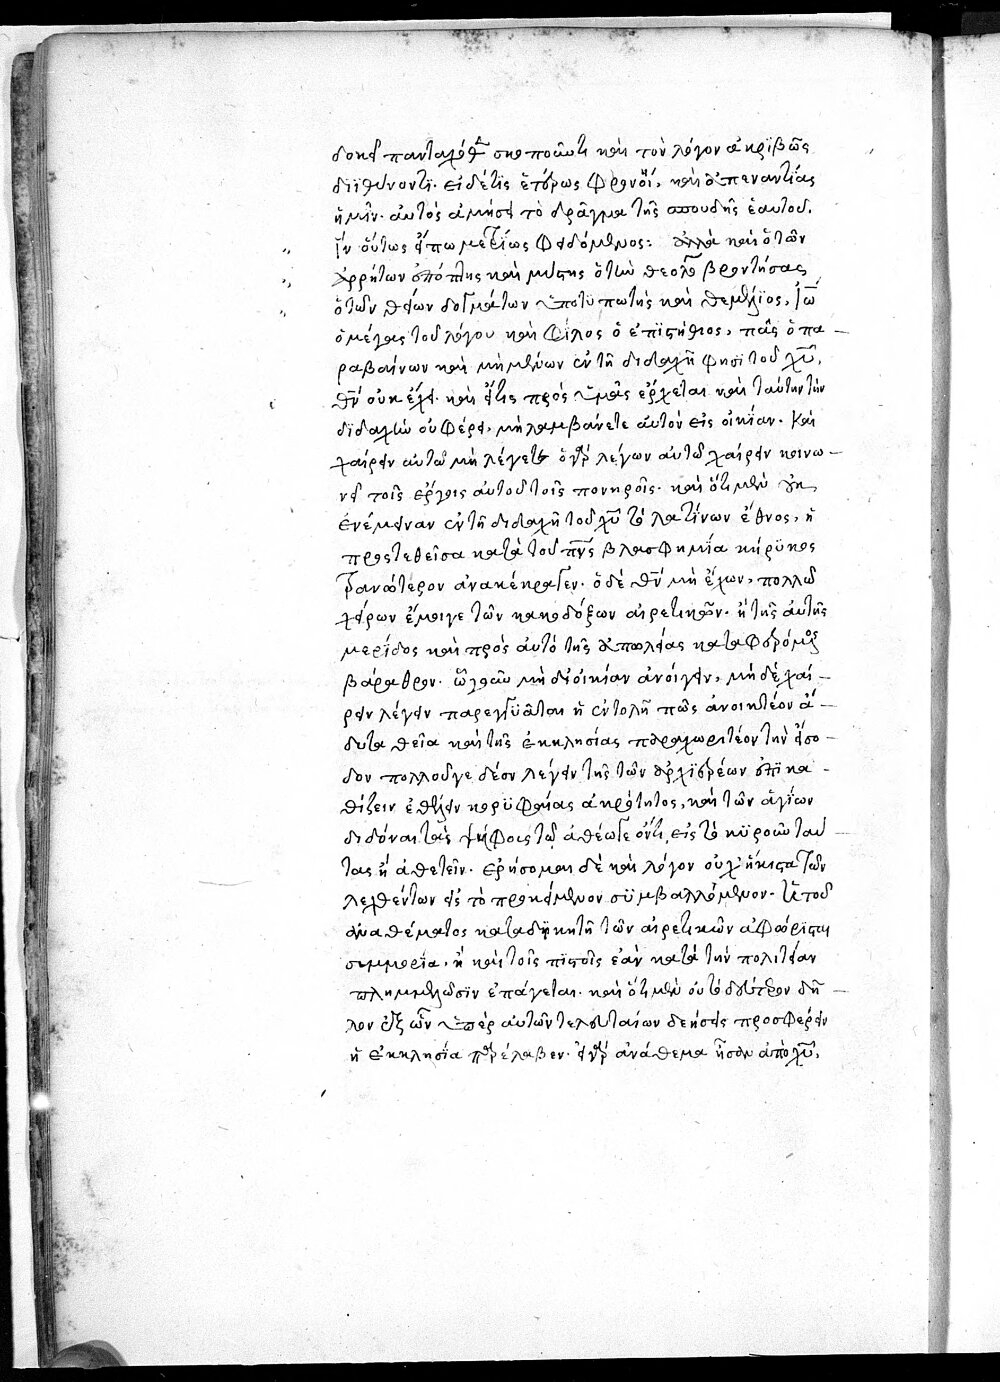 δοκεῖ πανταχόθεν σκοποῦντι καὶ τὸν λόγον ἀκριβῶς
διϊθύνοντι. εἰ δέ τις ἑτέρως φρονοίη, καὶ ἀπεναντίας
ἡμῖν. αὐτὸς ἀμήσει τὸ δράγμα τῆς σπουδῆς ἑαυτοῦ.
οὕτως εἴπω φειδόμενος: ἀλλὰ καὶ ὁ τῶν
ἀρρήτων ἐπόπτης καὶ μύστης ὁ τὴν θεολογίαν βροντήσας
ὁ τῶν θείων δογμάτων ὑποτυπωτὴς καὶ θεμέλιος, Ἰω
ὁ μέγας τοῦ λόγου καὶ φίλος ὁ ἐπιστήθιος, πᾶς ὁ πα-
ραβαίνων καὶ μὴ μένων ἐν τῆ διδαχῆ φησὶ τοῦ χυ,
θν οὐκ ἔχει. καὶ εἴτις πρὸς ὑμᾶς ἔρχεται καὶ ταύτην τὴν
διδαχὴν οὐ φέρει, μὴ λαμβάνετε αὐτὸν εἰς οἰκίαν. καὶ
χαίρειν αὐτῶ μὴ λέγετε ὁ γὰρ λέγων αὐτῶ χαίρειν κοινω-
νεῖ τοῖς ἔργοις αὐτοῦ τοῖς πονηροῖς. καὶ ὅτι μὲν οὐκ
ἐνέμειναν ἐν τῆ διδαχῆ τοῦ χυ τὸ λατίνων ἔθνος, ἡ
προστεθεῖσα κατὰ τοῦ πνς βλασφημία κήρυκος
τρανώτερον ἀνακέκραγεν. ὁ δὲ θν μὴ ἔχων, πολλῶ
χείρων ἔμοιγε τῶν κακοδόξων αἱρετικῶν. ἢ τῆς αὐτῆς
μερίδος καὶ πρὸς αὐτὸ τῆς ἀπωλείας καταφερόμενος
βάραθρον. ὧ γοῦν μὴ δὲ οἰκίαν ἀνοίγειν, μὴ δὲ χαί-
ρειν λέγειν παρεγγυᾶται ἡ ἐντολῆ πῶς ἀνοικτέον ἄ-
δυτα θεῖα καὶ τῆς ἐκκλησίας παραχωριτέον τὴν εἴσο-
δον πολλοῦγε δέον λέγειν τῆς τῶν ἀρχϊερέων ἐπῒ κα-
θίζειν ἐθέλειν κορϋφαίας ἀκρότητος, καὶ τῶν ἁγίων
διδόναι τὰς ψήφους τῶ ἀθέωγε ὄντι, εἰς τὸ κϋροῦν ταύ-
τας ἢ ἀθετεῖν. ἐρήσομαι δὲ καὶ λόγον οὐχ ἥκιστα τῶν
λεχθέντων εἰς τὸ προκείμενον συμβαλλόμενον. τοῦ
ἀναθέματος καταδίκη τῆ τῶν αἱρετικῶν ἀφώρισται
συμμορία, ἢ καὶ τοῖς πιστοῖς ἐὰν κατὰ τὴν πολιτείαν
πλημμελῶσϊν ἐπάγεται. καὶ ὅτι μὲν οὐ τὸ δεύτερον δῆ-
λον ἐξ ὧν ὑπὲρ αὐτῶν τελευταίων δεήσεις προσφέρειν
ἡ ἐκκλησΐα παρέλαβεν. εἰ γὰρ ἀνάθεμα ἦσαν ἀπὸ χυ,